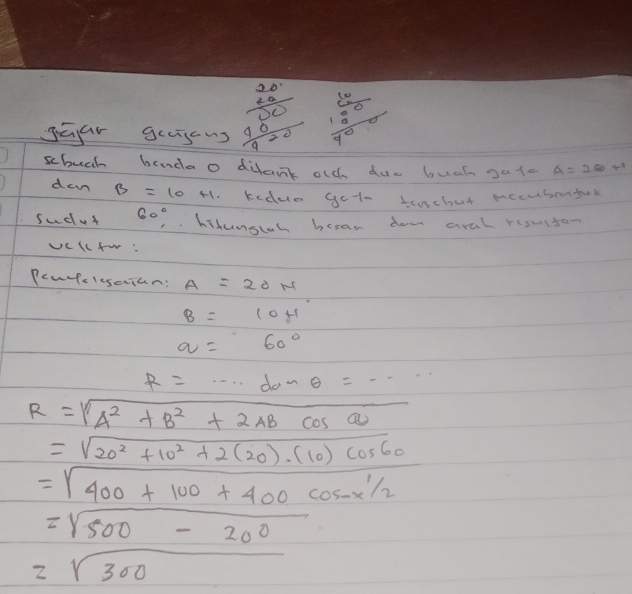 20
20
00
jajar genjang
sebuah benda o ditarik oleh dua buah gaya A = 20 N
dan B = 10 N. kedua gaya tersebut membentuk
sudut 60°, hitunglah besar dan arah resultan
vektor:
Penyelesaian: A = 20 N
B = 10 N
α = 60°
R = .... dan θ = ....
R = √A² + B² + 2AB cos α
= √20² + 10² + 2(20).(10) cos 60
= √400 + 100 + 400 cos -x 1/2
= √500 - 200
= √300